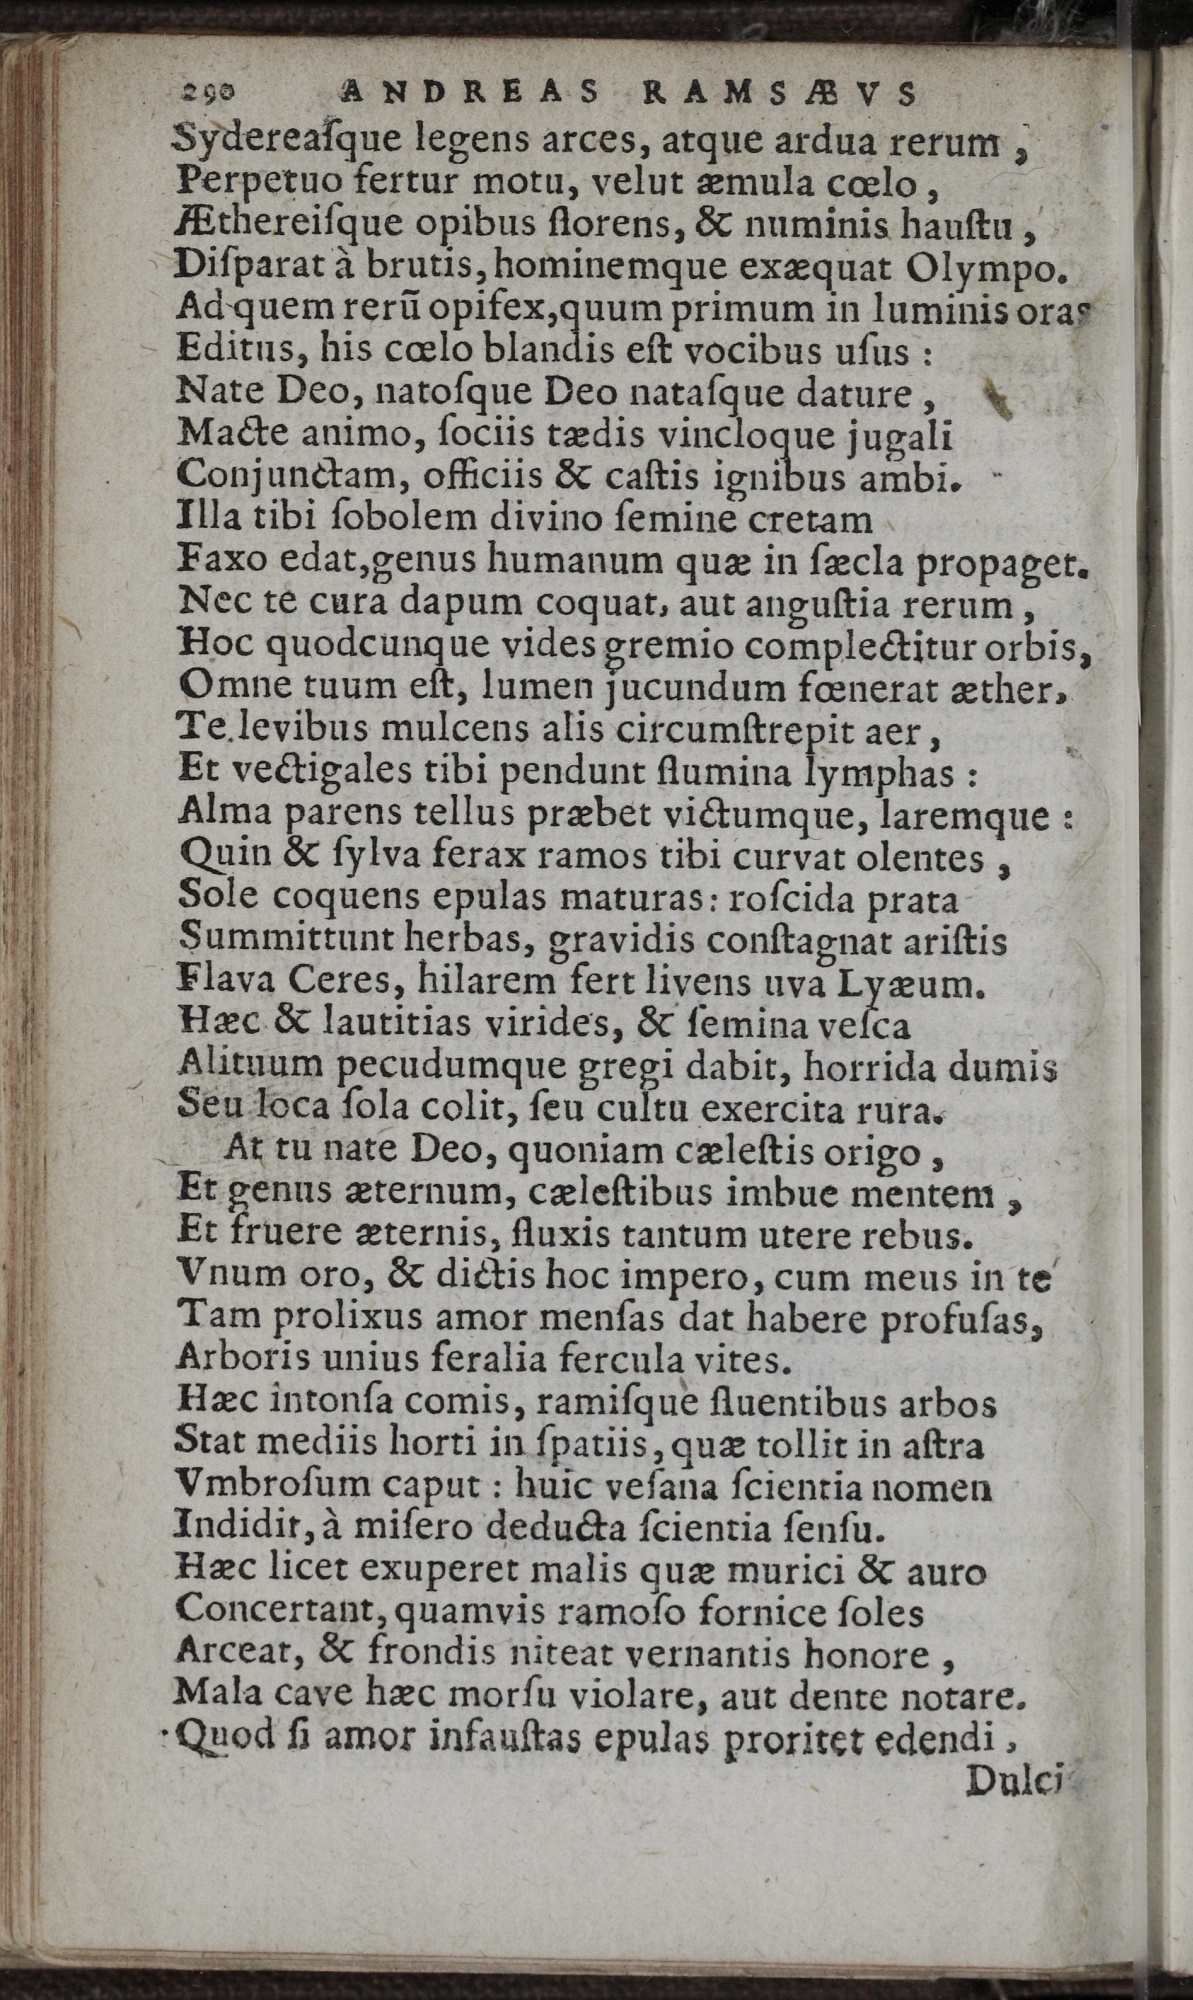 290 ANDREAS RAMSÆVS
Sydereaſque legens arces, atque ardua rerum,
Perpetuo fertur motu, velut æmula cœlo,
Æthereiſque opibus florens, & numinis hauſtu,
Diſparat à brutis, hominemque exæquat Olympo.
Ad quem rerū opifex, quum primum in luminis oras
Editus, his cœlo blandis eſt vocibus uſus:
Nate Deo, natoſque Deo nataſque dature,
Macte animo, ſociis tædis vincloque jugali
Conjunctam, officiis & caſtis ignibus ambi.
Illa tibi ſobolem divino ſemine cretam
Faxo edat, genus humanum quæ in ſæcla propaget.
Nec te cura dapum coquat, aut anguſtia rerum,
Hoc quodcunque vides gremio complectitur orbis,
Omne tuum eſt, lumen jucundum fœnerat æther,
Te levibus mulcens alis circumſtrepit aer,
Et vectigales tibi pendunt flumina lymphas:
Alma parens tellus præbet victumque, laremque:
Quin & ſylva ferax ramos tibi curvat olentes,
Sole coquens epulas maturas: roſcida prata
Summittunt herbas, gravidis conſtagnat ariſtis
Flava Ceres, hilarem fert livens uva Lyæum.
Hæc & lautitias virides, & ſemina veſca
Alituum pecudumque gregi dabit, horrida dumis
Seu loca ſola colit, ſeu cultu exercita rura.
At tu nate Deo, quoniam cæleſtis origo,
Et genus æternum, cæleſtibus imbue mentem,
Et fruere æternis, fluxis tantum utere rebus.
Vnum oro, & dictis hoc impero, cum meus in te
Tam prolixus amor menſas dat habere profuſas,
Arboris unius feralia fercula vites.
Hæc intonſa comis, ramiſque fluentibus arbos
Stat mediis horti in ſpatiis, quæ tollit in aſtra
Vmbroſum caput: huic veſana ſcientia nomen
Indidit, à miſero deducta ſcientia ſenſu.
Hæc licet exuperet malis quæ murici & auro
Concertant, quamvis ramoſo fornice ſoles
Arceat, & frondis niteat vernantis honore,
Mala cave hæc morſu violare, aut dente notare.
Quod ſi amor infauſtas epulas proritet edendi,
Dulci